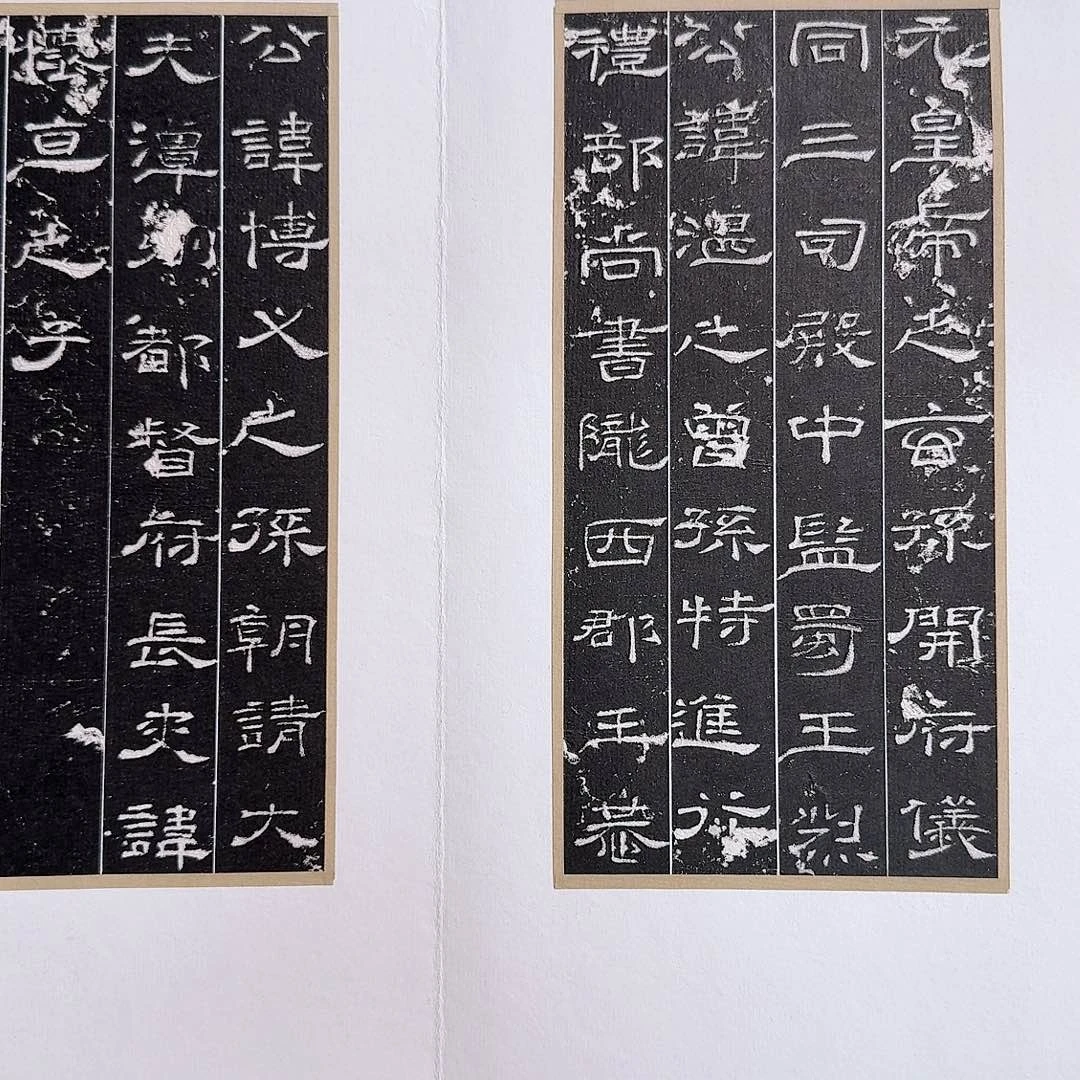 元皇帝之玄孫開府儀
同三司殿中監蜀王烈
公諱湛之曾孫特進行
禮部尚書隴西郡王恭
公諱博乂之孫朝請大
夫潭州都督府長史諱
懷亶之子